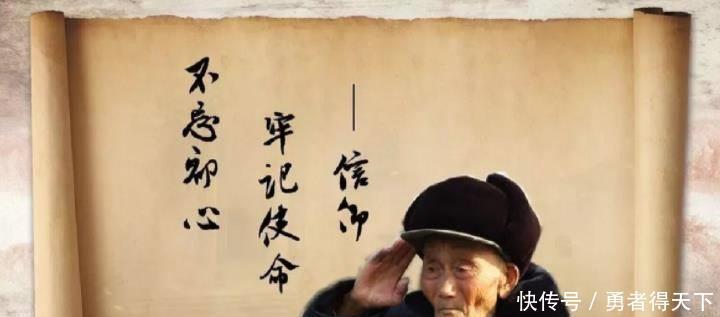 不忘初心
牢记使命
——信仰
快传号/勇者得天下